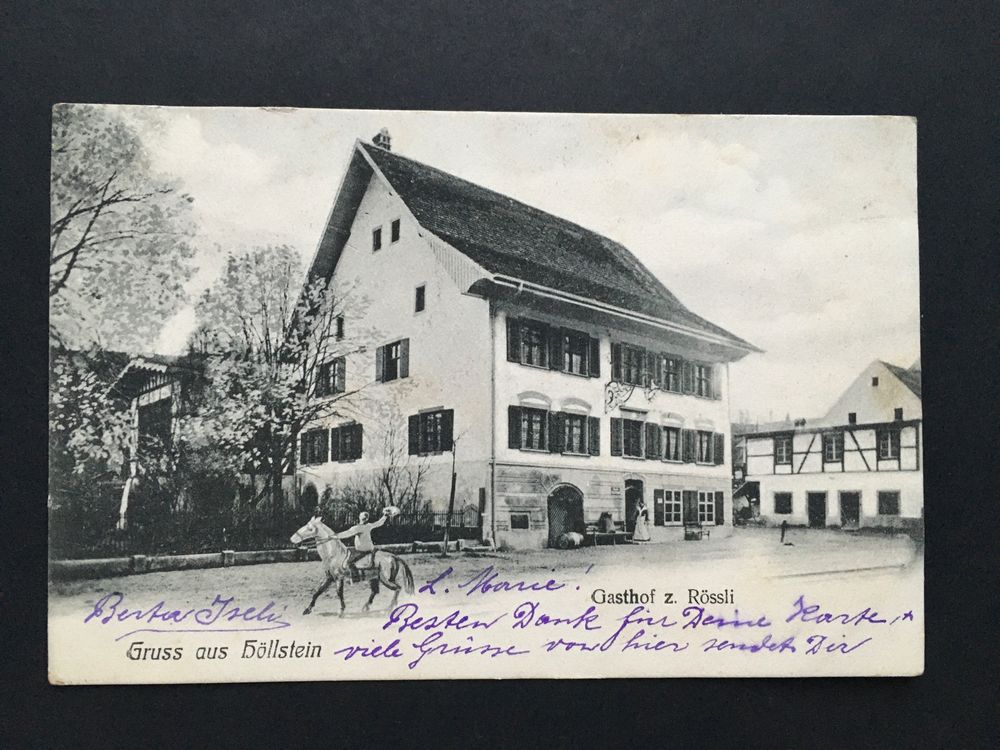 L. Marie!
Gasthof z. Rössli
Berta Iseli
Besten Dank für Deine Karte, +
Gruss aus Höllstein
viele Grüsse von hier sendet Dir